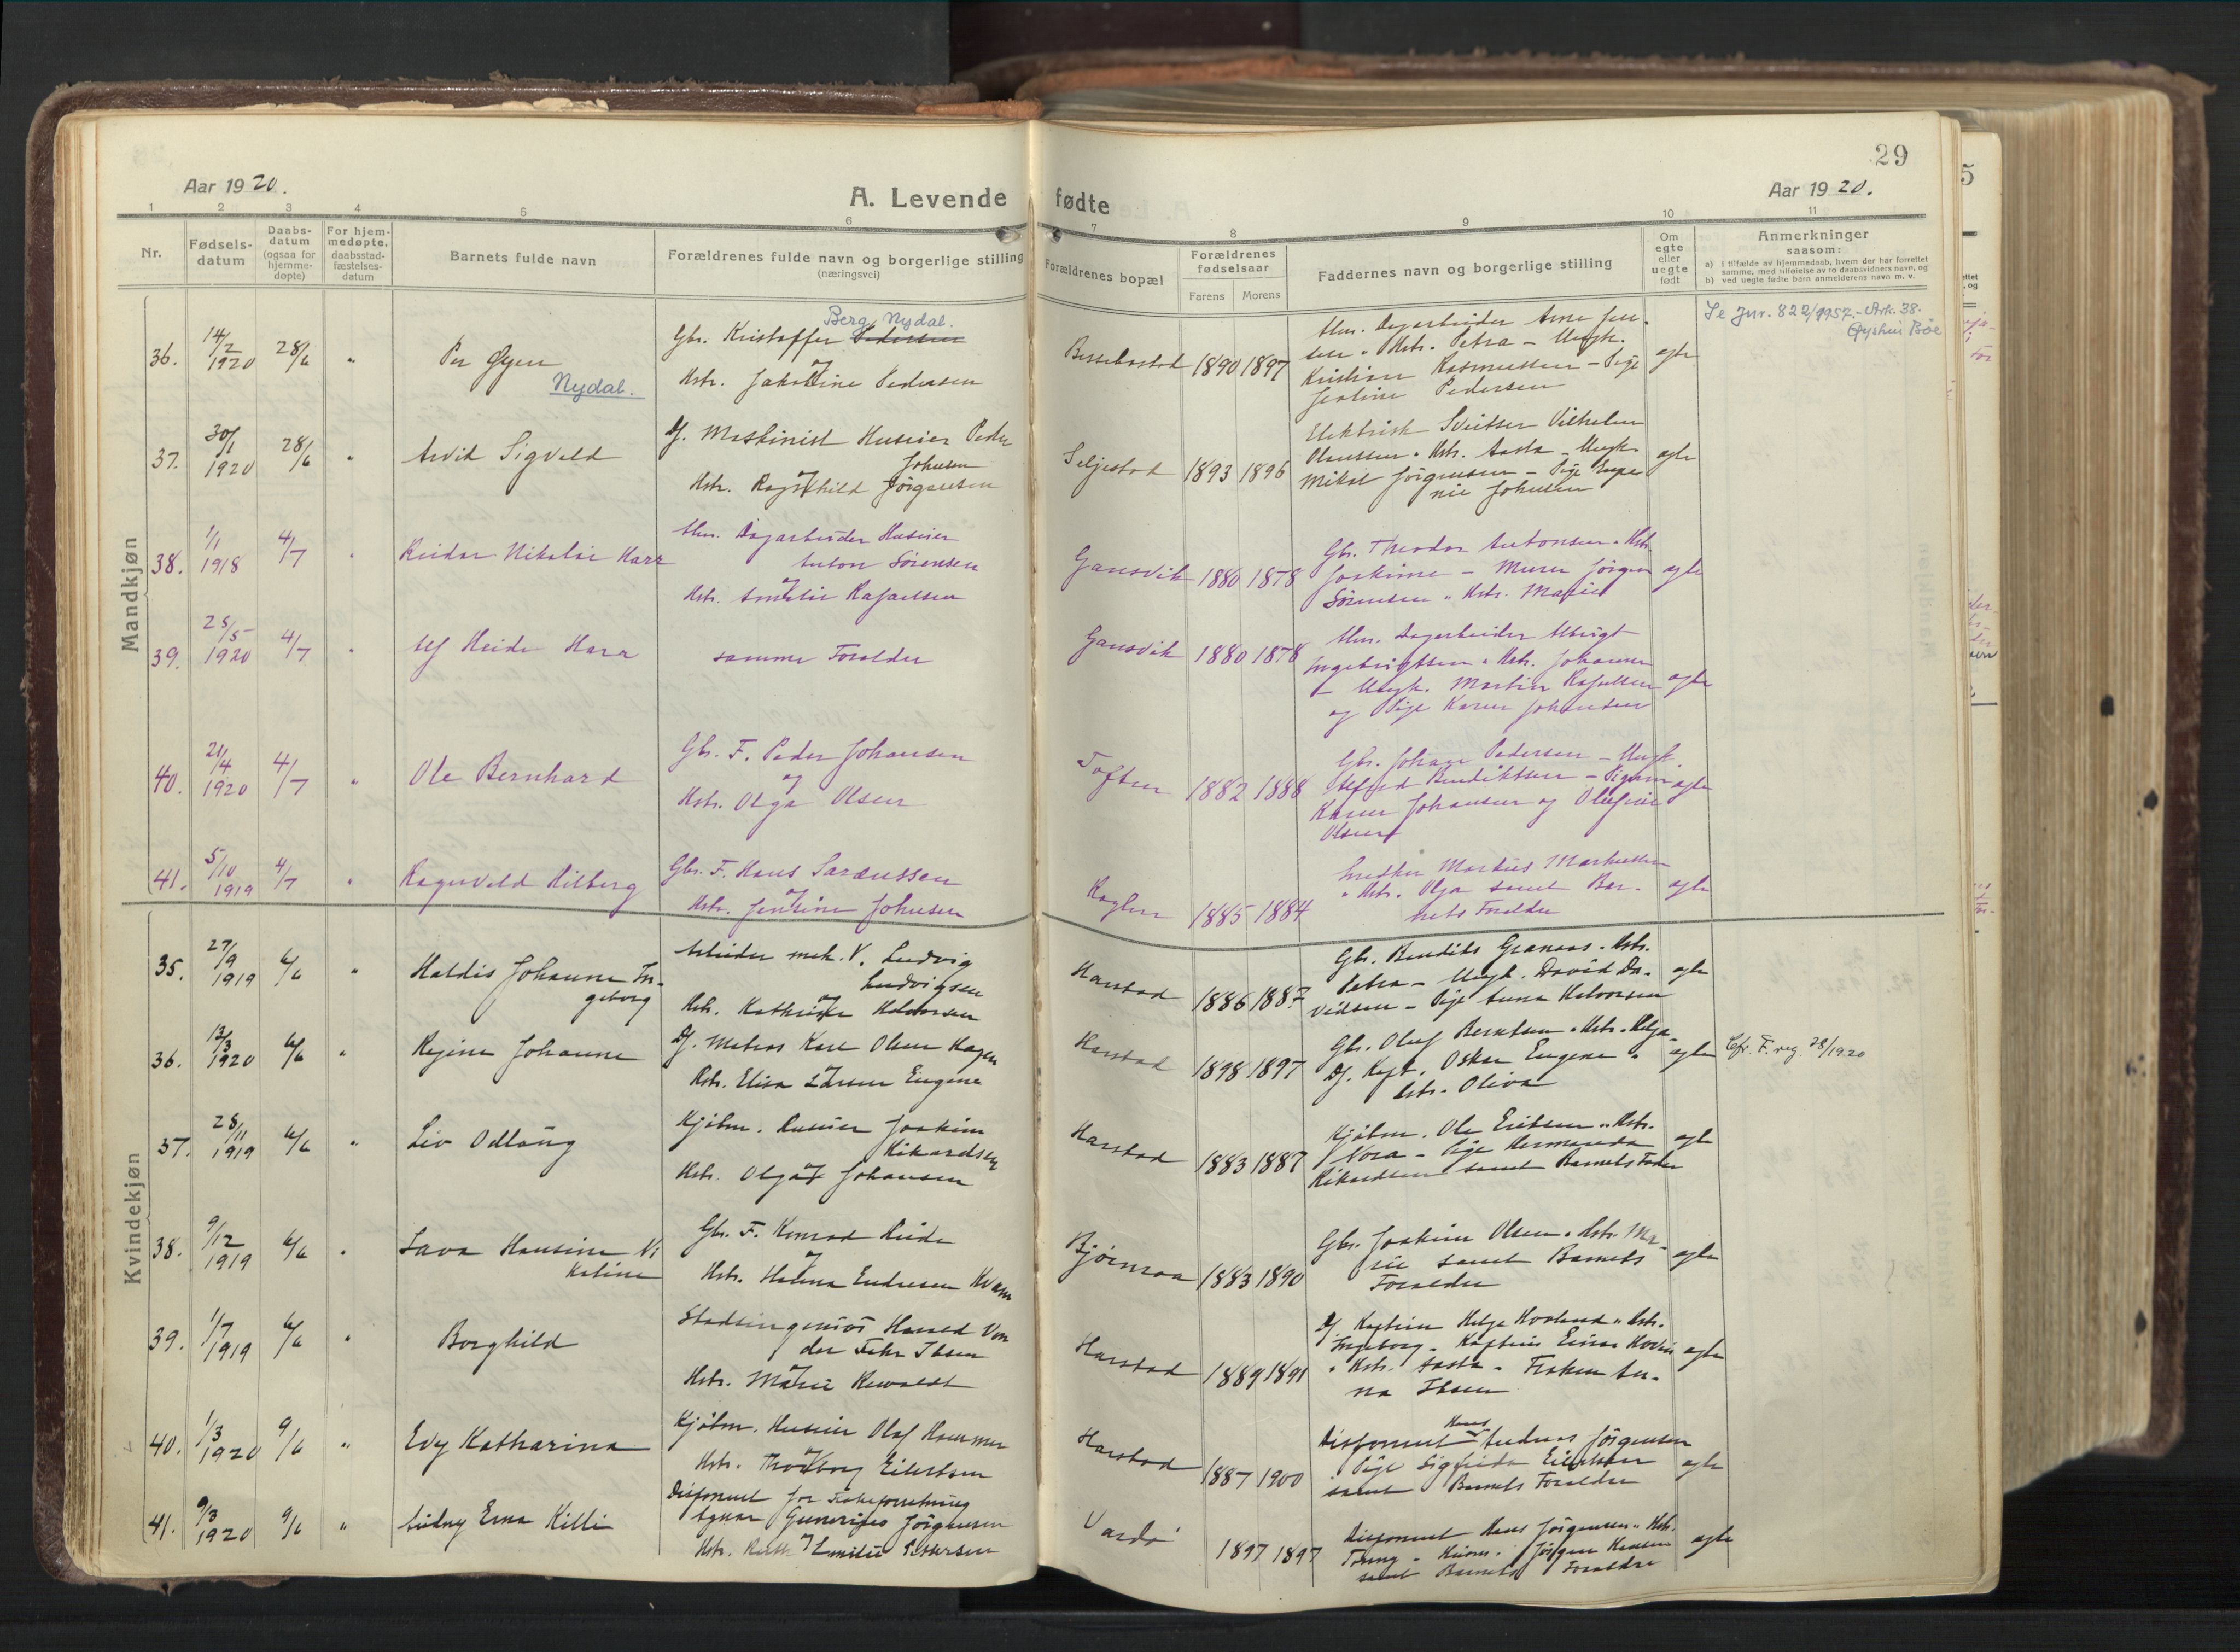 29
Aar 1920.
A. Levende fødte
Aar 1920.
1 2 3 4 5 6 7 8 9 10 11
Nr.
Fødsels-
datum
Daabs-
datum
(ogsaa for
hjemme-
døpte)
For hjem-
medøpte,
daabsstad-
fæstelses-
datum
Barnets fulde navn
Forældrenes fulde navn og borgerlige stilling
(næringsvei)
Forældrenes bopæl
Forældrenes
fødselsaar
Farens Morens
Faddernes navn og borgerlige stilling
Om
egte
eller
uegte
født
Anmerkninger
saasom:
a) i tilfælde av hjemmedaab, hvem der har forrettet
samme, med tilføielse av to daabsvidners navn, og
b) ved uegte fødte barn anmelderens navn m. v.
Mandkjøn
36. 14/2 1920 28/6 "
Per Øyen
Nydal.
Berg Nydal.
Gbr. Kristoffer Pedersen
og
Hstr. Pedersen
1890 1897
Arne Jen-
sen " Hstr. Petra - Ungk.
Kristian Rasmussen - Pige
Pedersen
egte
Se Jnr. 822/1957. - Ark. 38.
Øyshui Bøe
37. 30/1 1920 28/6 "
Arvid Sigvald
Df. Maskinist Huseier Peder
Johnsen
og
Hstr. Ragnhild Jörgensen
Seljestad 1893 1896
Elektrisk Vilhelm
Hstr. Aasta - Ungk.
Mikal Jörgensen - Pige Euge
nie Johnsen
egte
38. 1/1 1918 4/7 "
Reidar Nikolai Harr
Alm. Dagarbeider Huseier
Anton Sörensen
og
Hstr. Amalie Rafaelsen
Gansvik 1880 1878
Gbr. Theodor Antonsen " Hstr.
Joakime - Murer Jörgen
Sörensen " Hstr. Marie
egte
39. 25/5 1920 4/7 "
Alf Heide Harr
samme Forældre
Gansvik 1880 1878
Alm. Dagarbeider
Ingebrigtsen " Hstr. Johanne
- Ungk. Martin Rafaelsen
og Pige Karen Johansen
egte
40. 21/4 1920 4/7 "
Ole Bernhard
Gbr. F. Peder Johansen
og
Hstr. Olga Olsen
Toften 1882 1888
Gbr. Johan Pedersen - Ungk.
Bendiktsen - Pigerne
Karen Johansen og
Olsen
egte
41. 5/10 1919 4/7 "
Ragnvald Hilberg
Gbr. F. Hans
og
Hstr. Jensine Johnsen
1885 1884
Markus
" Hstr. Olga samt Bar-
nets Forældre
egte
Kvindekjøn
35. 27/9 1919 6/6 "
Haldis Johanne In-
geborg
Arbeider mek. V. Ludvig
Ludvigsen
og
Hstr. Kathrine Halvorsen
Harstad 1886 1887
Gbr. Bendiks Granaas " Hstr.
Petra - Ungk. David Da-
vidsen - Pige Anna Halvorsen
egte
36. 13/3 1920 6/6 "
Regine Johanne
Df. Matros Karl Olsen Hagen
Hstr. Elisa Larsen Eugene
Harstad 1898 1897
Gbr. Oluf Berntsen " Hstr. Helga -
Df. Kapt. Oskar Eugene "
Hstr. Oliva
egte
Cfr. F. reg. 28/1920
37. 28/11 1919 6/6 "
Liv Odlaug
Kjøbm. Huseier Joakim
Rikardsen
og
Hstr. Olga Johansen
Harstad 1883 1887
Kjøbm. Ole Eriksen " Hstr.
Nora - Pige Hermanda
Rikardsen samt Barnets Fader
egte
38. 9/12 1919 6/6 "
Hansine Ni
koline
Gbr. F. Konrad
og
Hstr. Helena Endresen
1883 1890
Gbr. Joakim Olsen " Hstr. Ma-
rie samt Barnets
Forældre
egte
39. 1/7 1919 6/6 "
Borghild
Stadsingeniör Harald Von
der Fehr Ibsen
og
Hstr. Marie Rewoldt
Harstad 1889 1891
Df Kaptein Helge Hovland " Hstr.
Ingeborg - Kaptein Einar
" Hstr. Aasta - Frøken An-
na Ibsen
egte
40. 1/3 1920 9/6 "
Edy Katharina
Kjøbm. Husier Olaf Hammer
og
Hstr. Thorborg Eilertsen
Harstad 1887 1900
Hans
Disponent Andreas Jörgensen
Pige Eilertsen
samt Barnets Forældre
egte
41. 9/3 1920 9/6 "
Aidny Erna Killi
Disponent for Fiskeforretning
Jörgensen
og
Hstr. Ruth Emilie Pettersen
Vardö 1897 1897
Disponent Hans Jörgensen " Hstr.
Jörgen Hansen
samt Barnets Forældre
egte